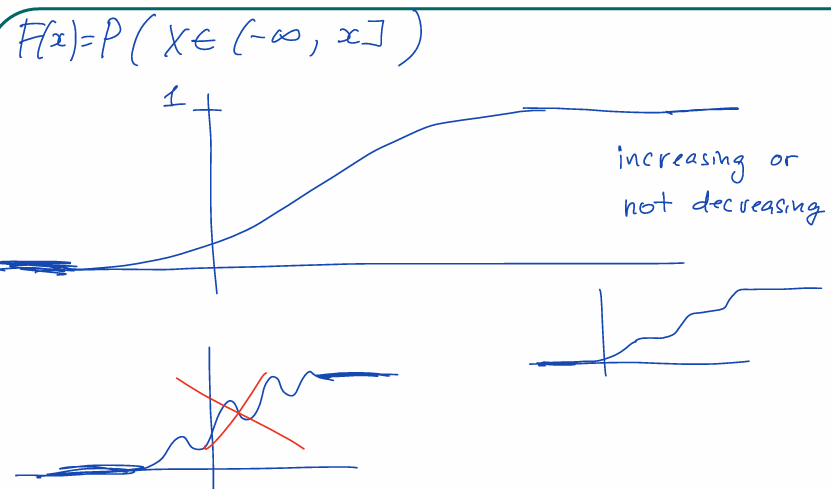 F(x)=P(X∈(-∞, x])
1
increasing or
not decreasing